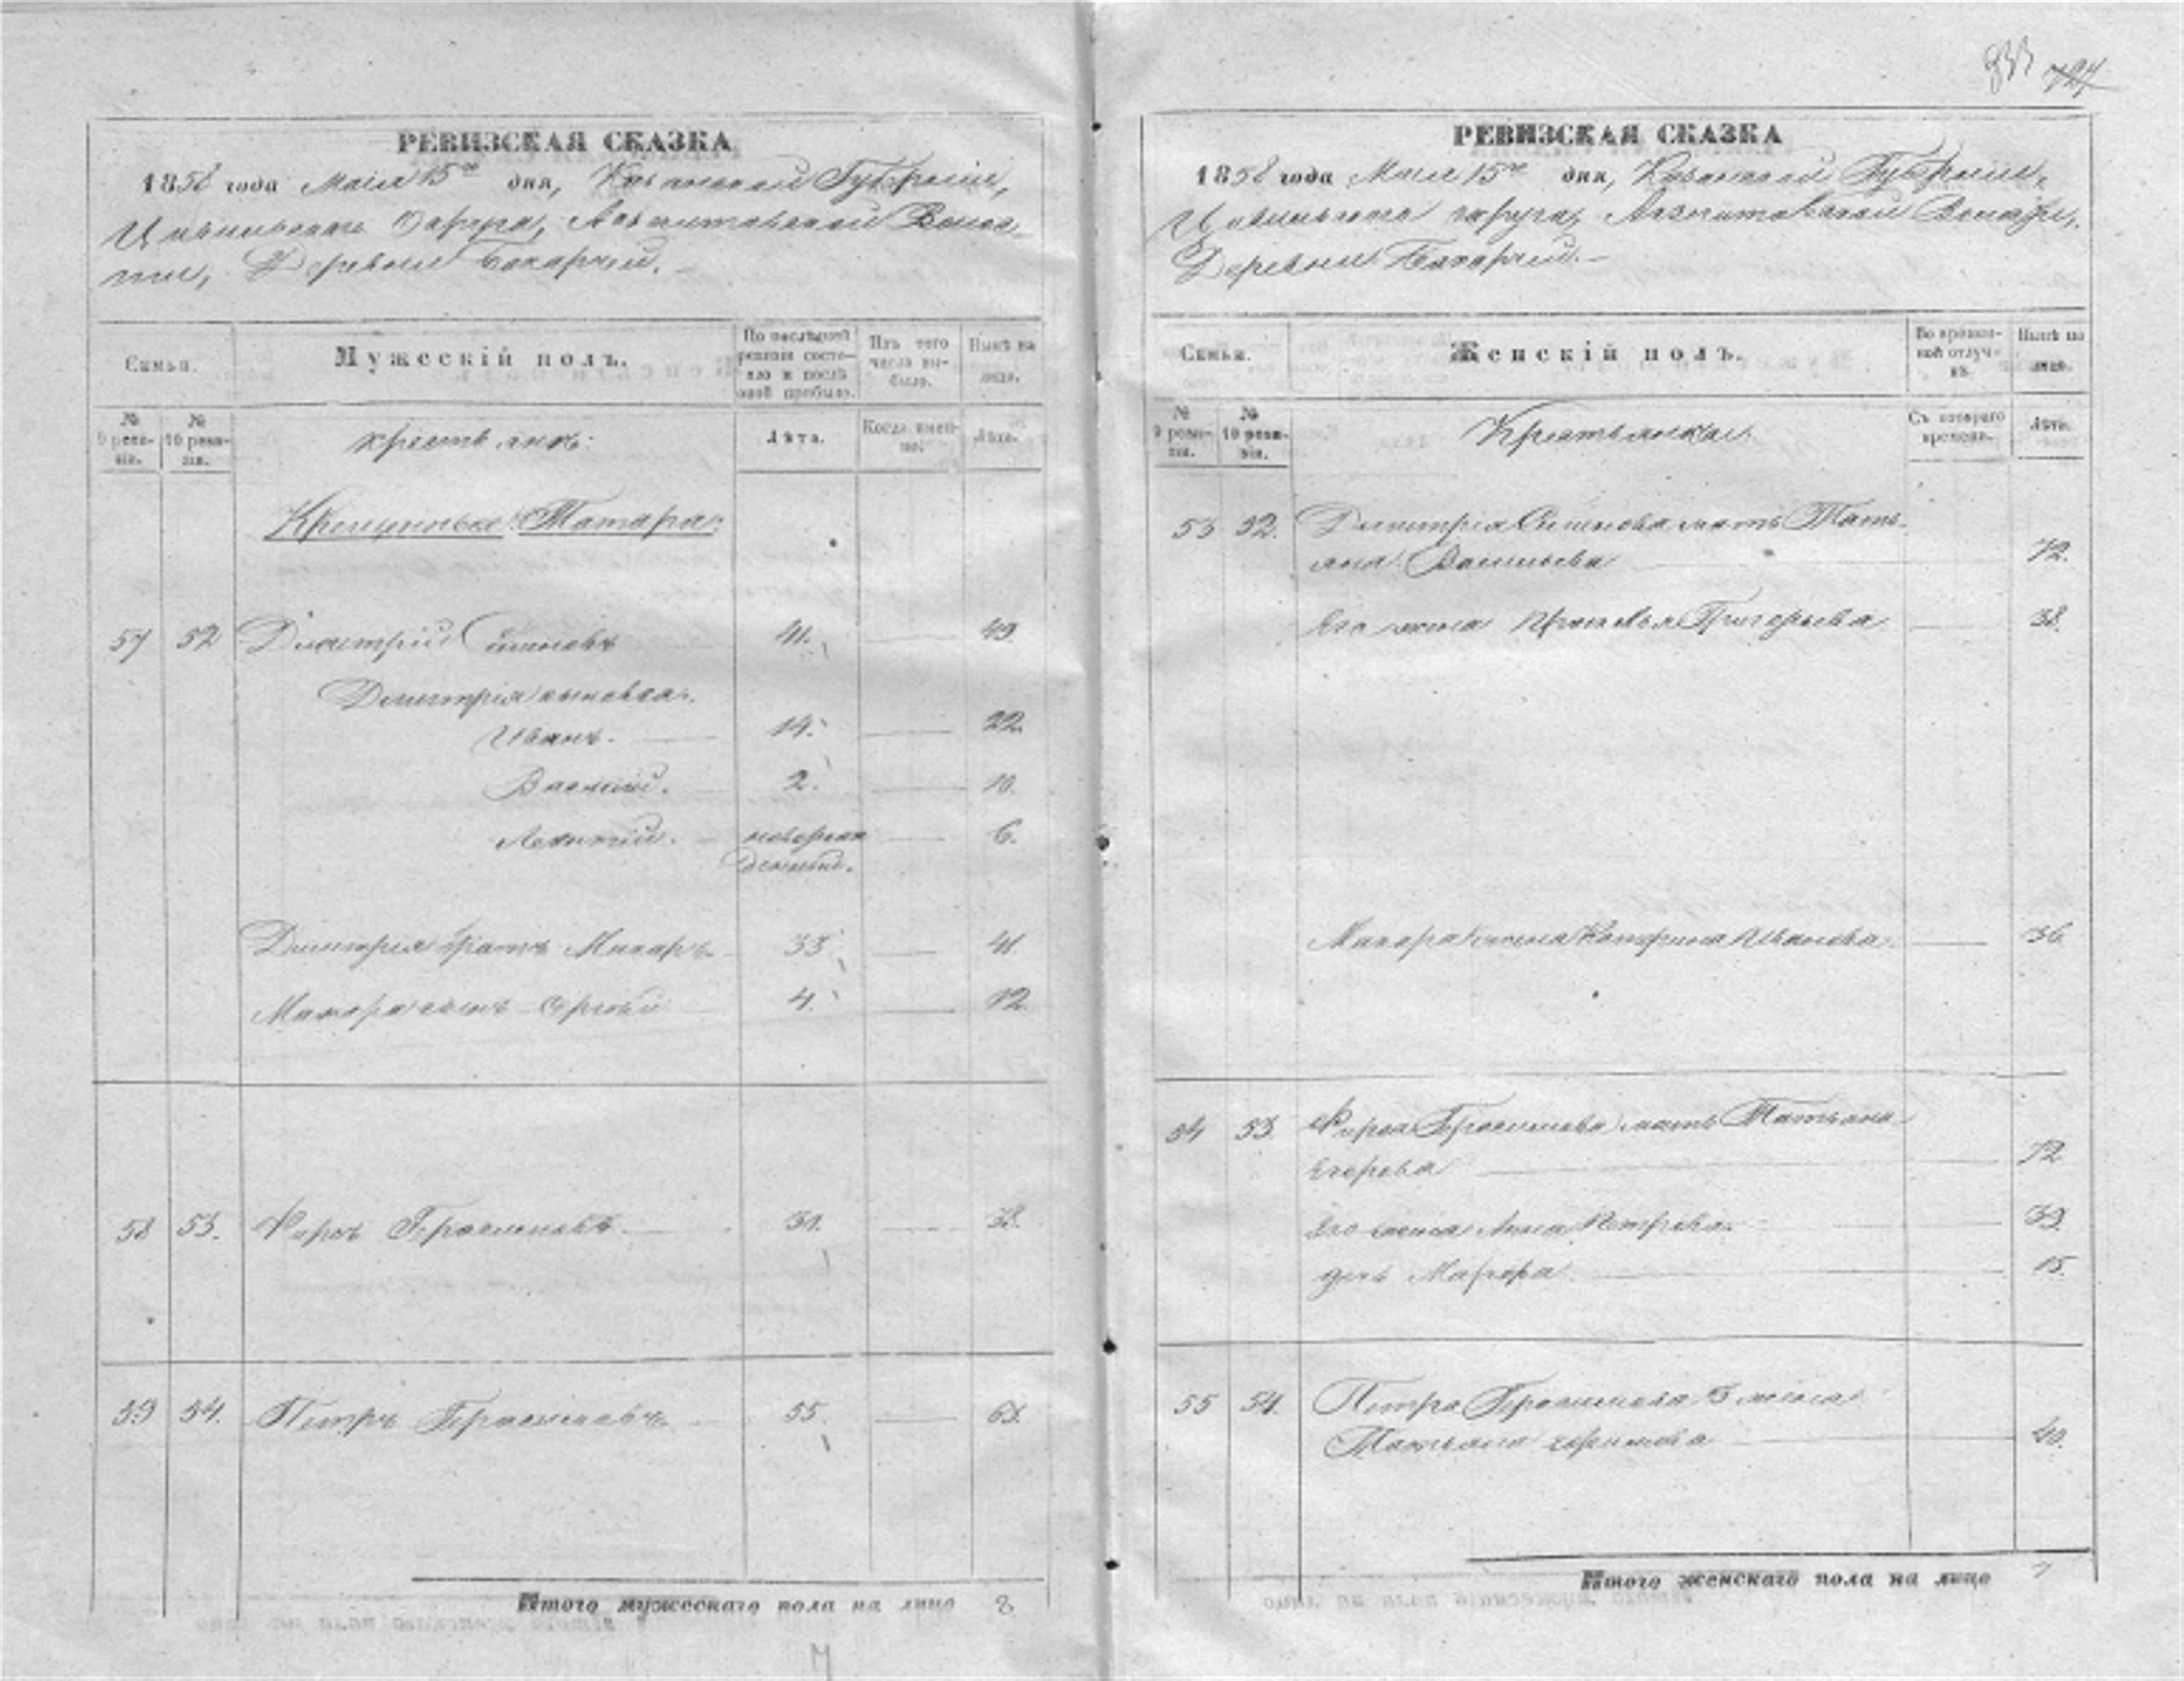 РЕВИЗСКАЯ СКАЗКА
1858 года Маiя 15го дня, Казанской Губернiи,
Цивильскаго Округа, Волос-
ти, Деревни
Семьи.
Мужескій полъ.
По послѣдней ревизіи состо-яло и послѣ оной прибыло.
Изъ того числа вы-было.
Нынѣ на лицо.
№ 9 реви-зіи.
№ 10 реви-зіи.
крестьянъ:
Лѣта.
Когда имен-но.
Лѣта.
Крещеные Татара:
57 52 Дмитрій Семеновъ 41. 49.
Дмитрія сыновья.
Иванъ. 14. 22.
Василій. 2. 10.
Леонтій. новорож 6.
денный.
Дмитрія братъ Макаръ 33 41.
Макара сынъ Сергѣй 4. 12.
58 53. Карпъ Герасимовъ 38.
59 54. Петръ Герасимовъ 55. 63.
Итого мужескаго пола на лицо 8
727
РЕВИЗСКАЯ СКАЗКА
1858 года Маiя 15го дня, Казанской Губернiи,
Цивильскаго округа, Волости,
Деревни
Семьи.
Женскій полъ.
Во времен-ной отлуч-кѣ.
Нынѣ на лицо.
№ 9 реви-зіи.
№ 10 реви-зіи.
Крестьянки.
Съ котораго времени.
Лѣта.
53 52. Дмитрія Семенова мать Тать-
яна Васильева 72.
Его жена Григорьева 38.
Макара жена Катерина Иванова 36.
54 53. Карпа Герасимова мать Татьяна
Егорова 72
Его жена Анна Петрова 39.
дочь Марфа 15.
55 54. Петра Герасимова 3 жена
Татьяна 40.
Итого женскаго пола на лицо 7